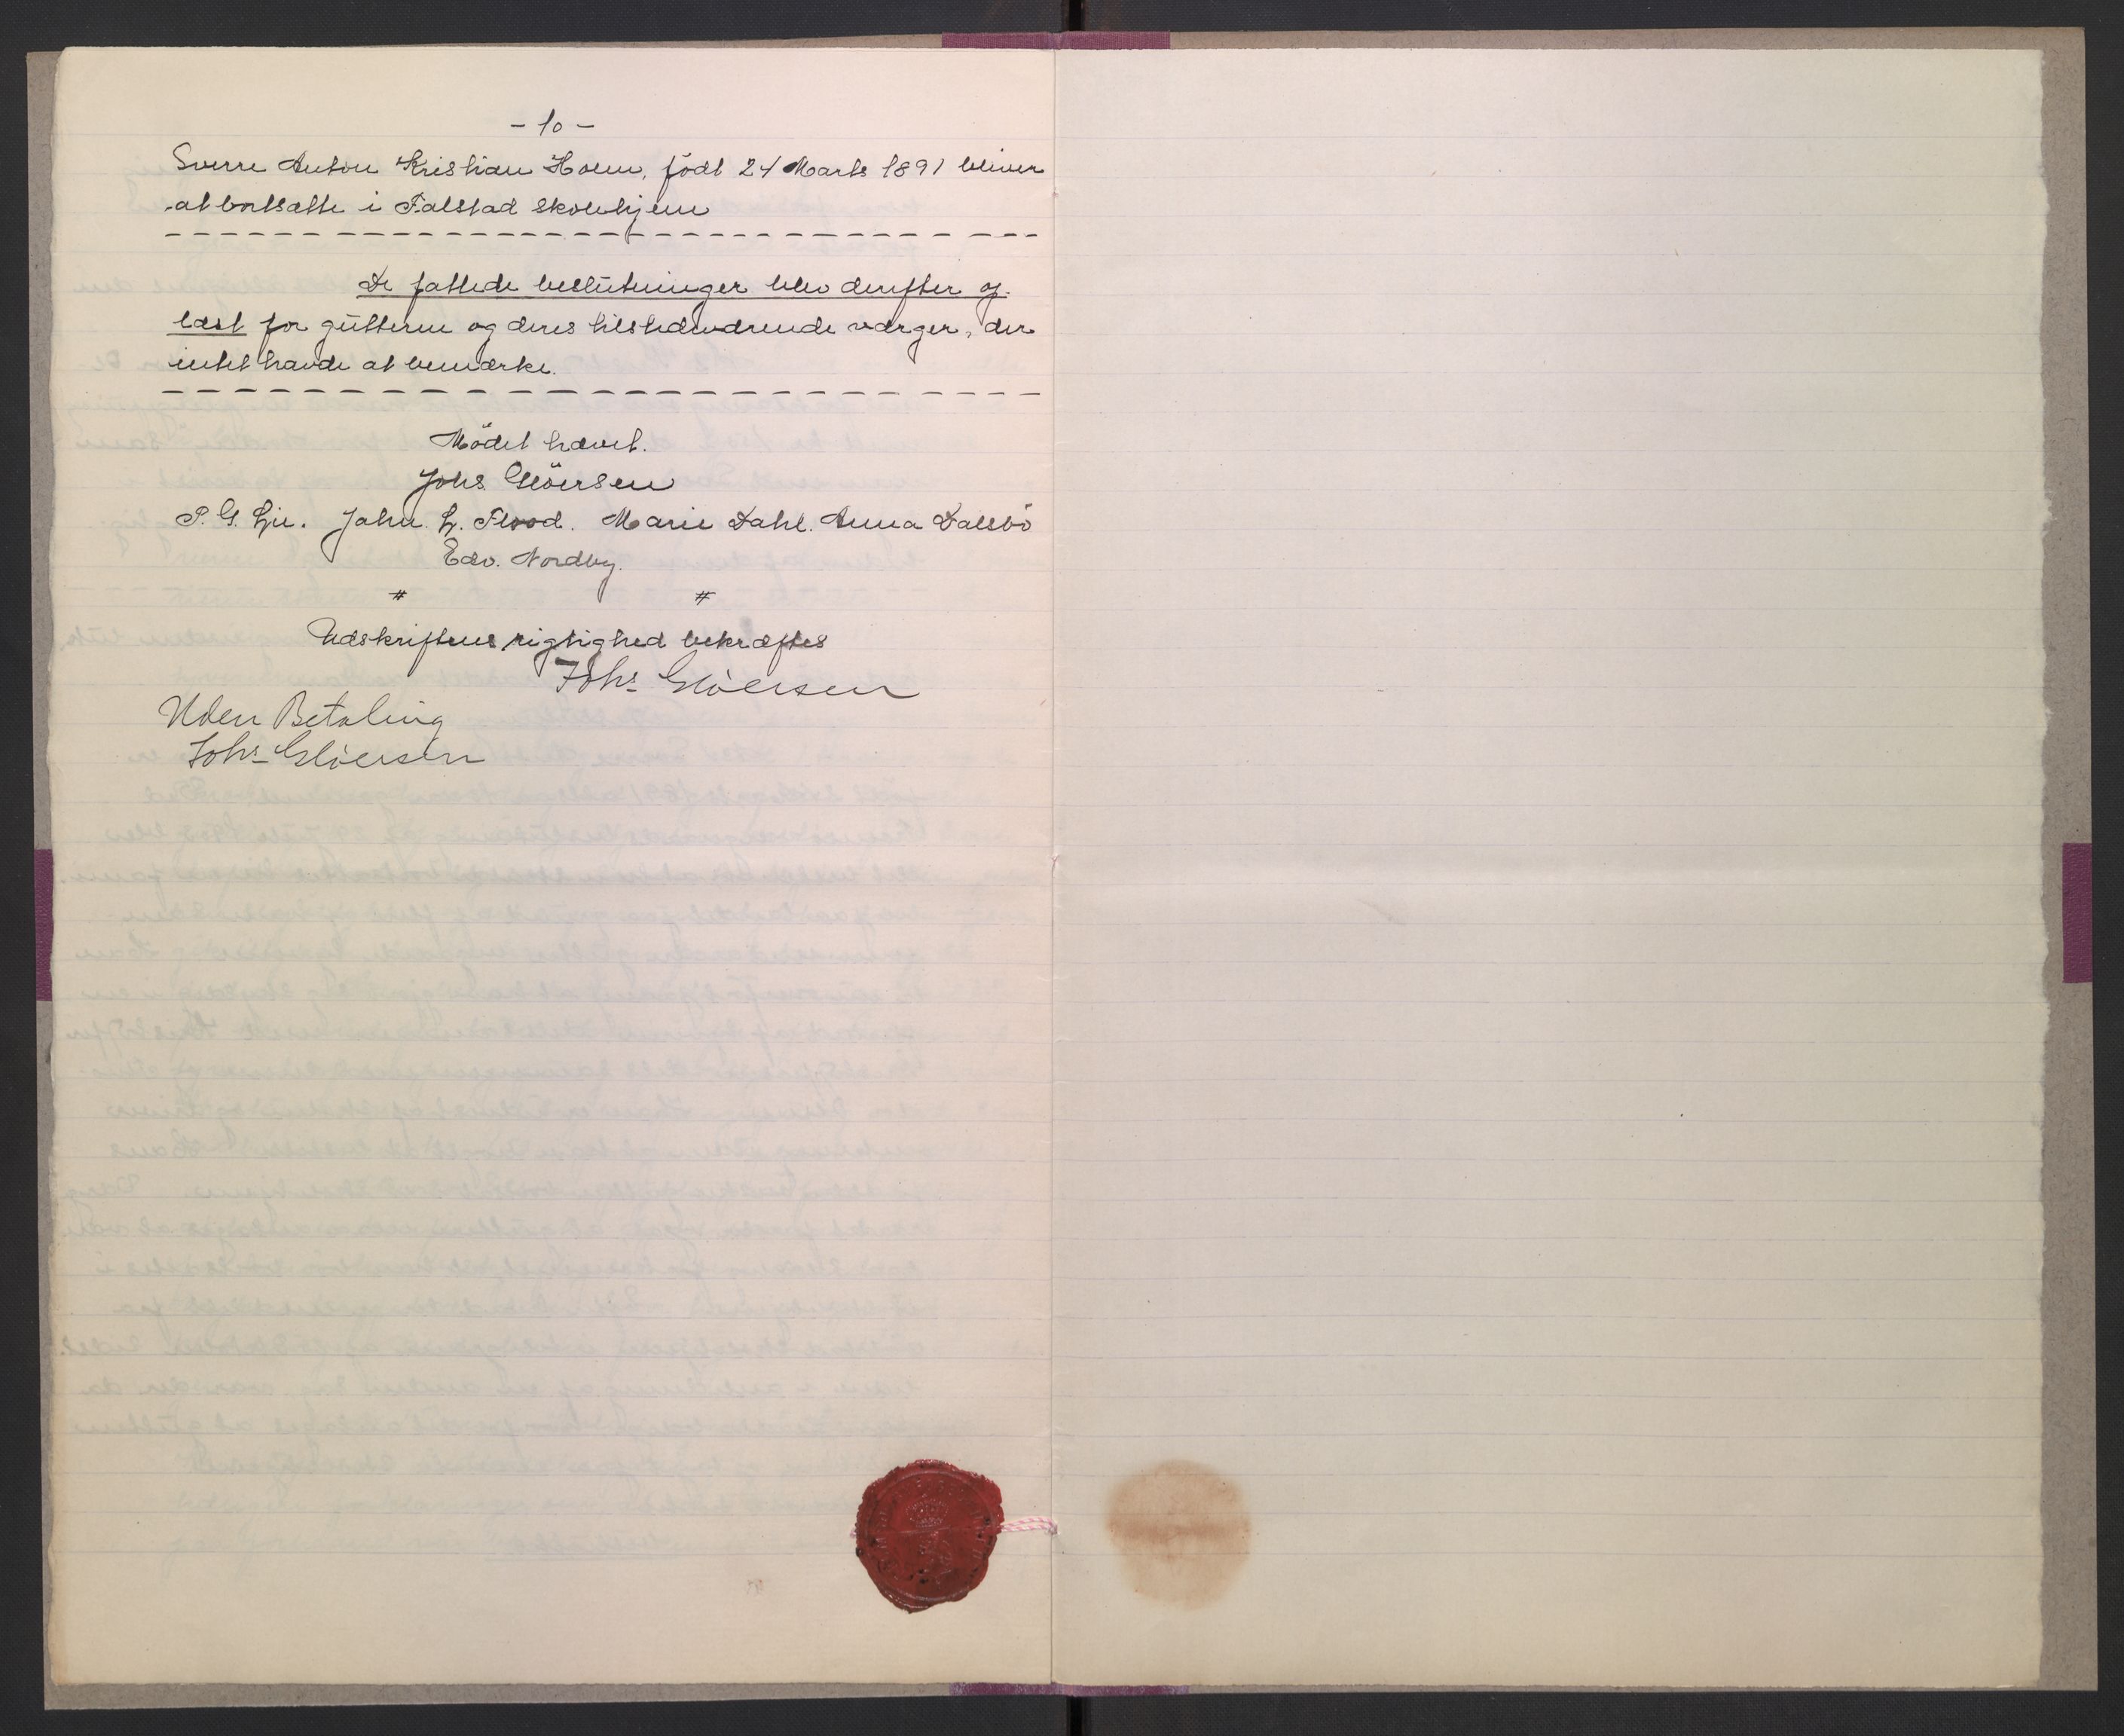 - 10 -
Sverre Anton Kristian Holm, född 24 Marts 1891 bliver
at bortsætte i Falstad skolehjem
De fattede beslutninger blev derefter op-
læst for gutterne og deres tilstedeværende værger, der
intet havde at bemærke.
Mödet hævet.
Johs Glöersen
P. G. Lie. John. L. Flood. Marie Dahl. Anna Dalsbö
Edv. Nordby.
Udskriftens rigtighed bekræftes
Johs Glöersen
Uden Betaling
Johs Glöersen